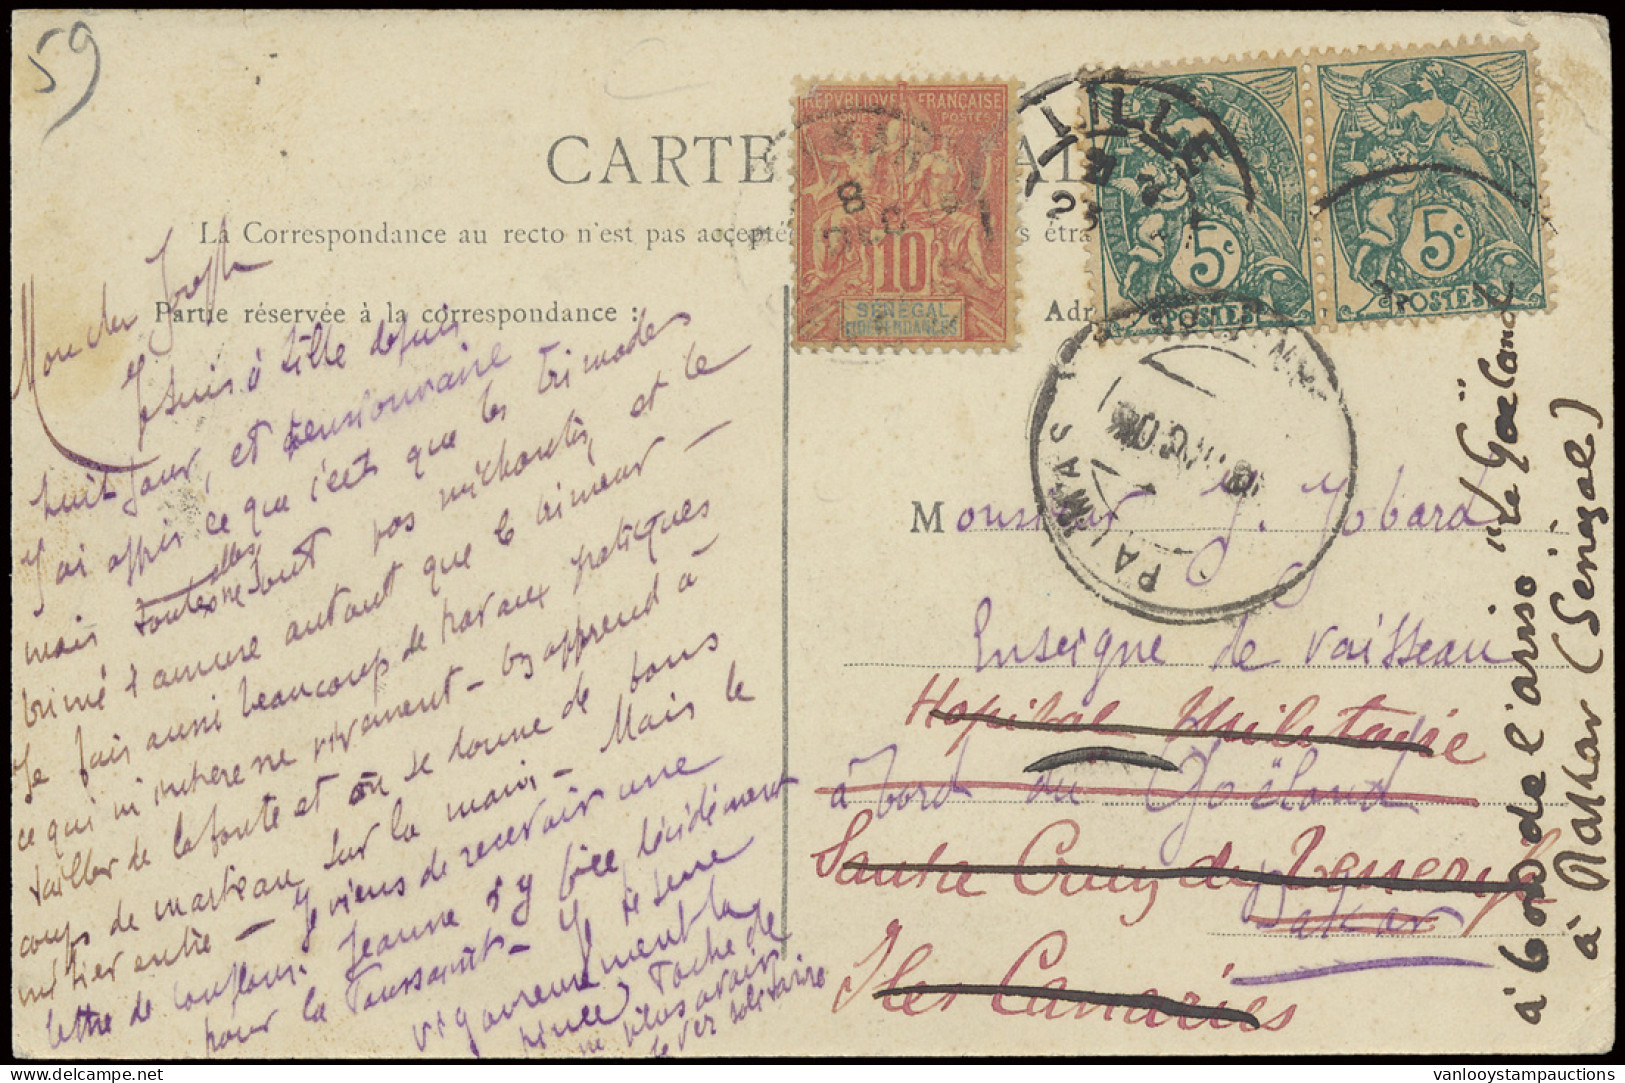 59
CARTE
La Correspondance au recto n'est pas accepté étra
Partie réservée à la correspondance :
Adr
RÉPUBLIQUE FRANÇAISE
COLONIES POSTES
8
DÉC
10
SÉNÉGAL
DÉPENDANCES
LILLE
25
5c
POSTES
5c
POSTES
PALMAS
Mon cher Joseph
Je suis à Lille depuis
huit jours, et pensionnaire
J'ai appris ce que c'est que les brimades
mais toutes elles ne sont pas méchantes, et le
brimé s'amuse autant que le brimeur —
Je fais aussi beaucoup de travaux pratiques
ce qui m'intéresse vivement — on apprend à
tailler de la fonte et on se donne de bons
coups de marteau sur la main — Mais le
métier entre — Je viens de recevoir une
lettre de
Jeanne s'y fixe décidément
pour la Toussaint — Je te serre
vigoureusement la
pince, tache de
ne plus avoir
le ver solitaire
Monsieur J. Jobard
Enseigne de vaisseau
Hopital Militaire
à bord du Goëland
Santa Cruz de Tenerife
Dakar
Iles Canaries
à bord de l'aviso "le Goëland"
à Dakar (Sénégal)
vanlooystampauctions